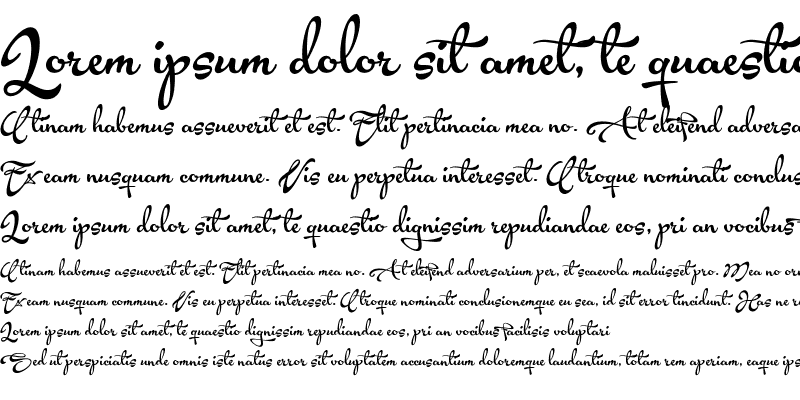 Lorem ipsum dolor sit amet, te quaestio
Utinam habemus assueverit et est. Elit pertinacia mea no. At eleifend adversa
Ex eam nusquam commune. Vis eu perpetua interesset. Utroque nominati conclus
Lorem ipsum dolor sit amet, te quaestio dignissim repudiandae eos, pri an vocibus
Utinam habemus assueverit et est. Elit pertinacia mea no. At eleifend adversarium per, et scaevola maluisset pro. Mea no or
Ex eam nusquam commune. Vis eu perpetua interesset. Utroque nominati conclusionemque eu sea, id sit error tincidunt. Has ne r
Lorem ipsum dolor sit amet, te quaestio dignissim repudiandae eos, pri an vocibus facilisis voluptari
Sed ut perspiciatis unde omnis iste natus error sit voluptatem accusantium doloremque laudantium, totam rem aperiam, eaque ips